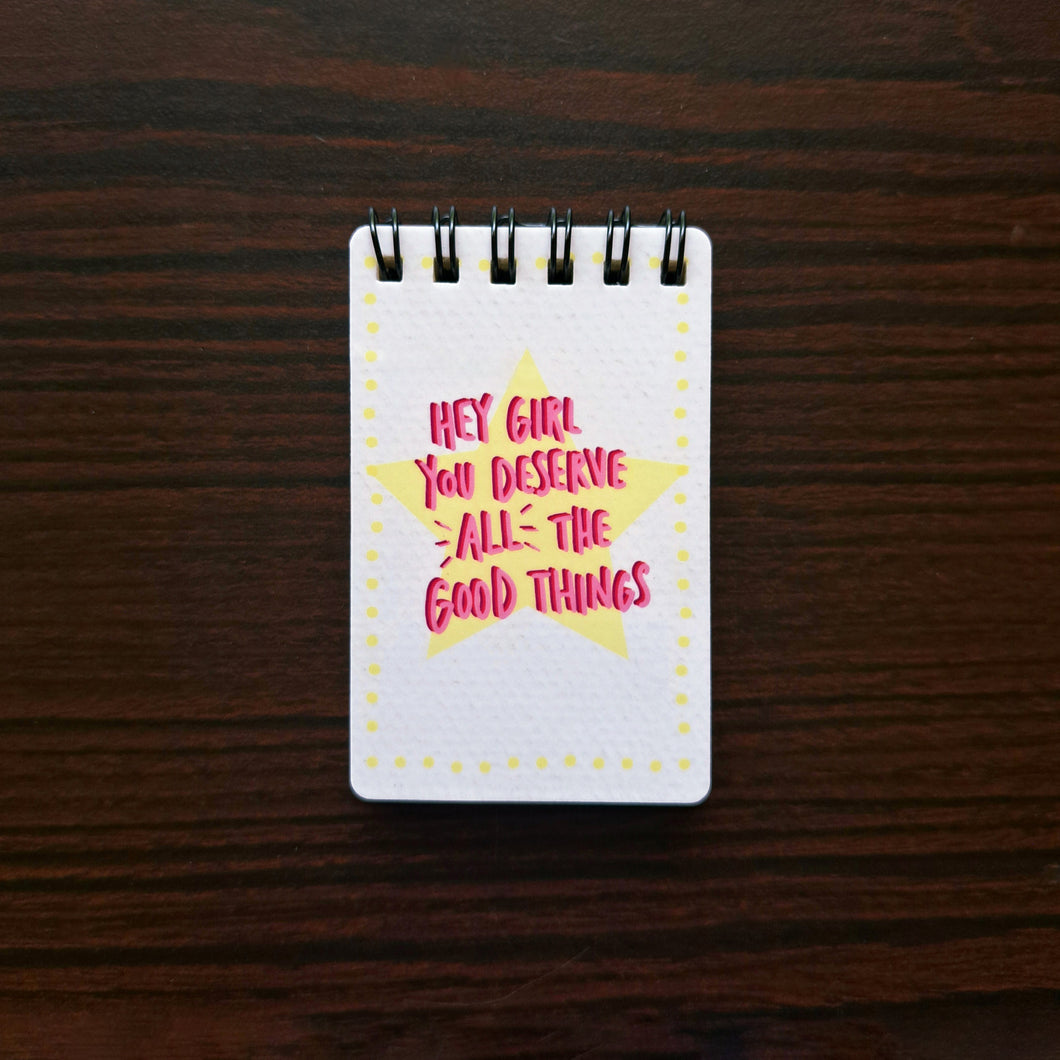 HEY GIRL
YOU DESERVE
ALL THE
GOOD THINGS